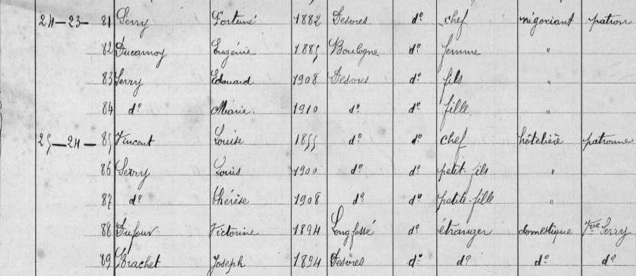 24-23- 81 Serry Fortuné 1882 Desvres do chef négociant patron
82 Ducarnoy Eugénie 1885 Boulogne do femme "
83 Serry Edouard 1908 Desvres do fils "
84 do Marie 1910 do do fille "
25-24- 85 Vincent Louise 1855 do do chef hôtelière patronne
86 Serry Louis 1900 do do petit fils "
87 do Thérèse 1908 do do petite fille "
88 Dufour Victorine 1894 Longfossé do étranger domestique Vve Serry
89 Brachet Joseph 1894 Desvres do do do do